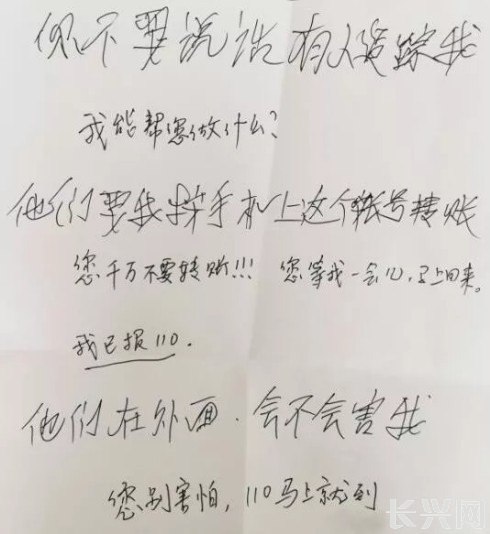 你不要说话有人追踪我
我能帮您做什么?
他们要我按手机上这个账号转账
您千万不要转账!!! 您等我一会儿,马上回来。
我已报110.
他们在外面.会不会害我
您别害怕,110马上就到
长兴网